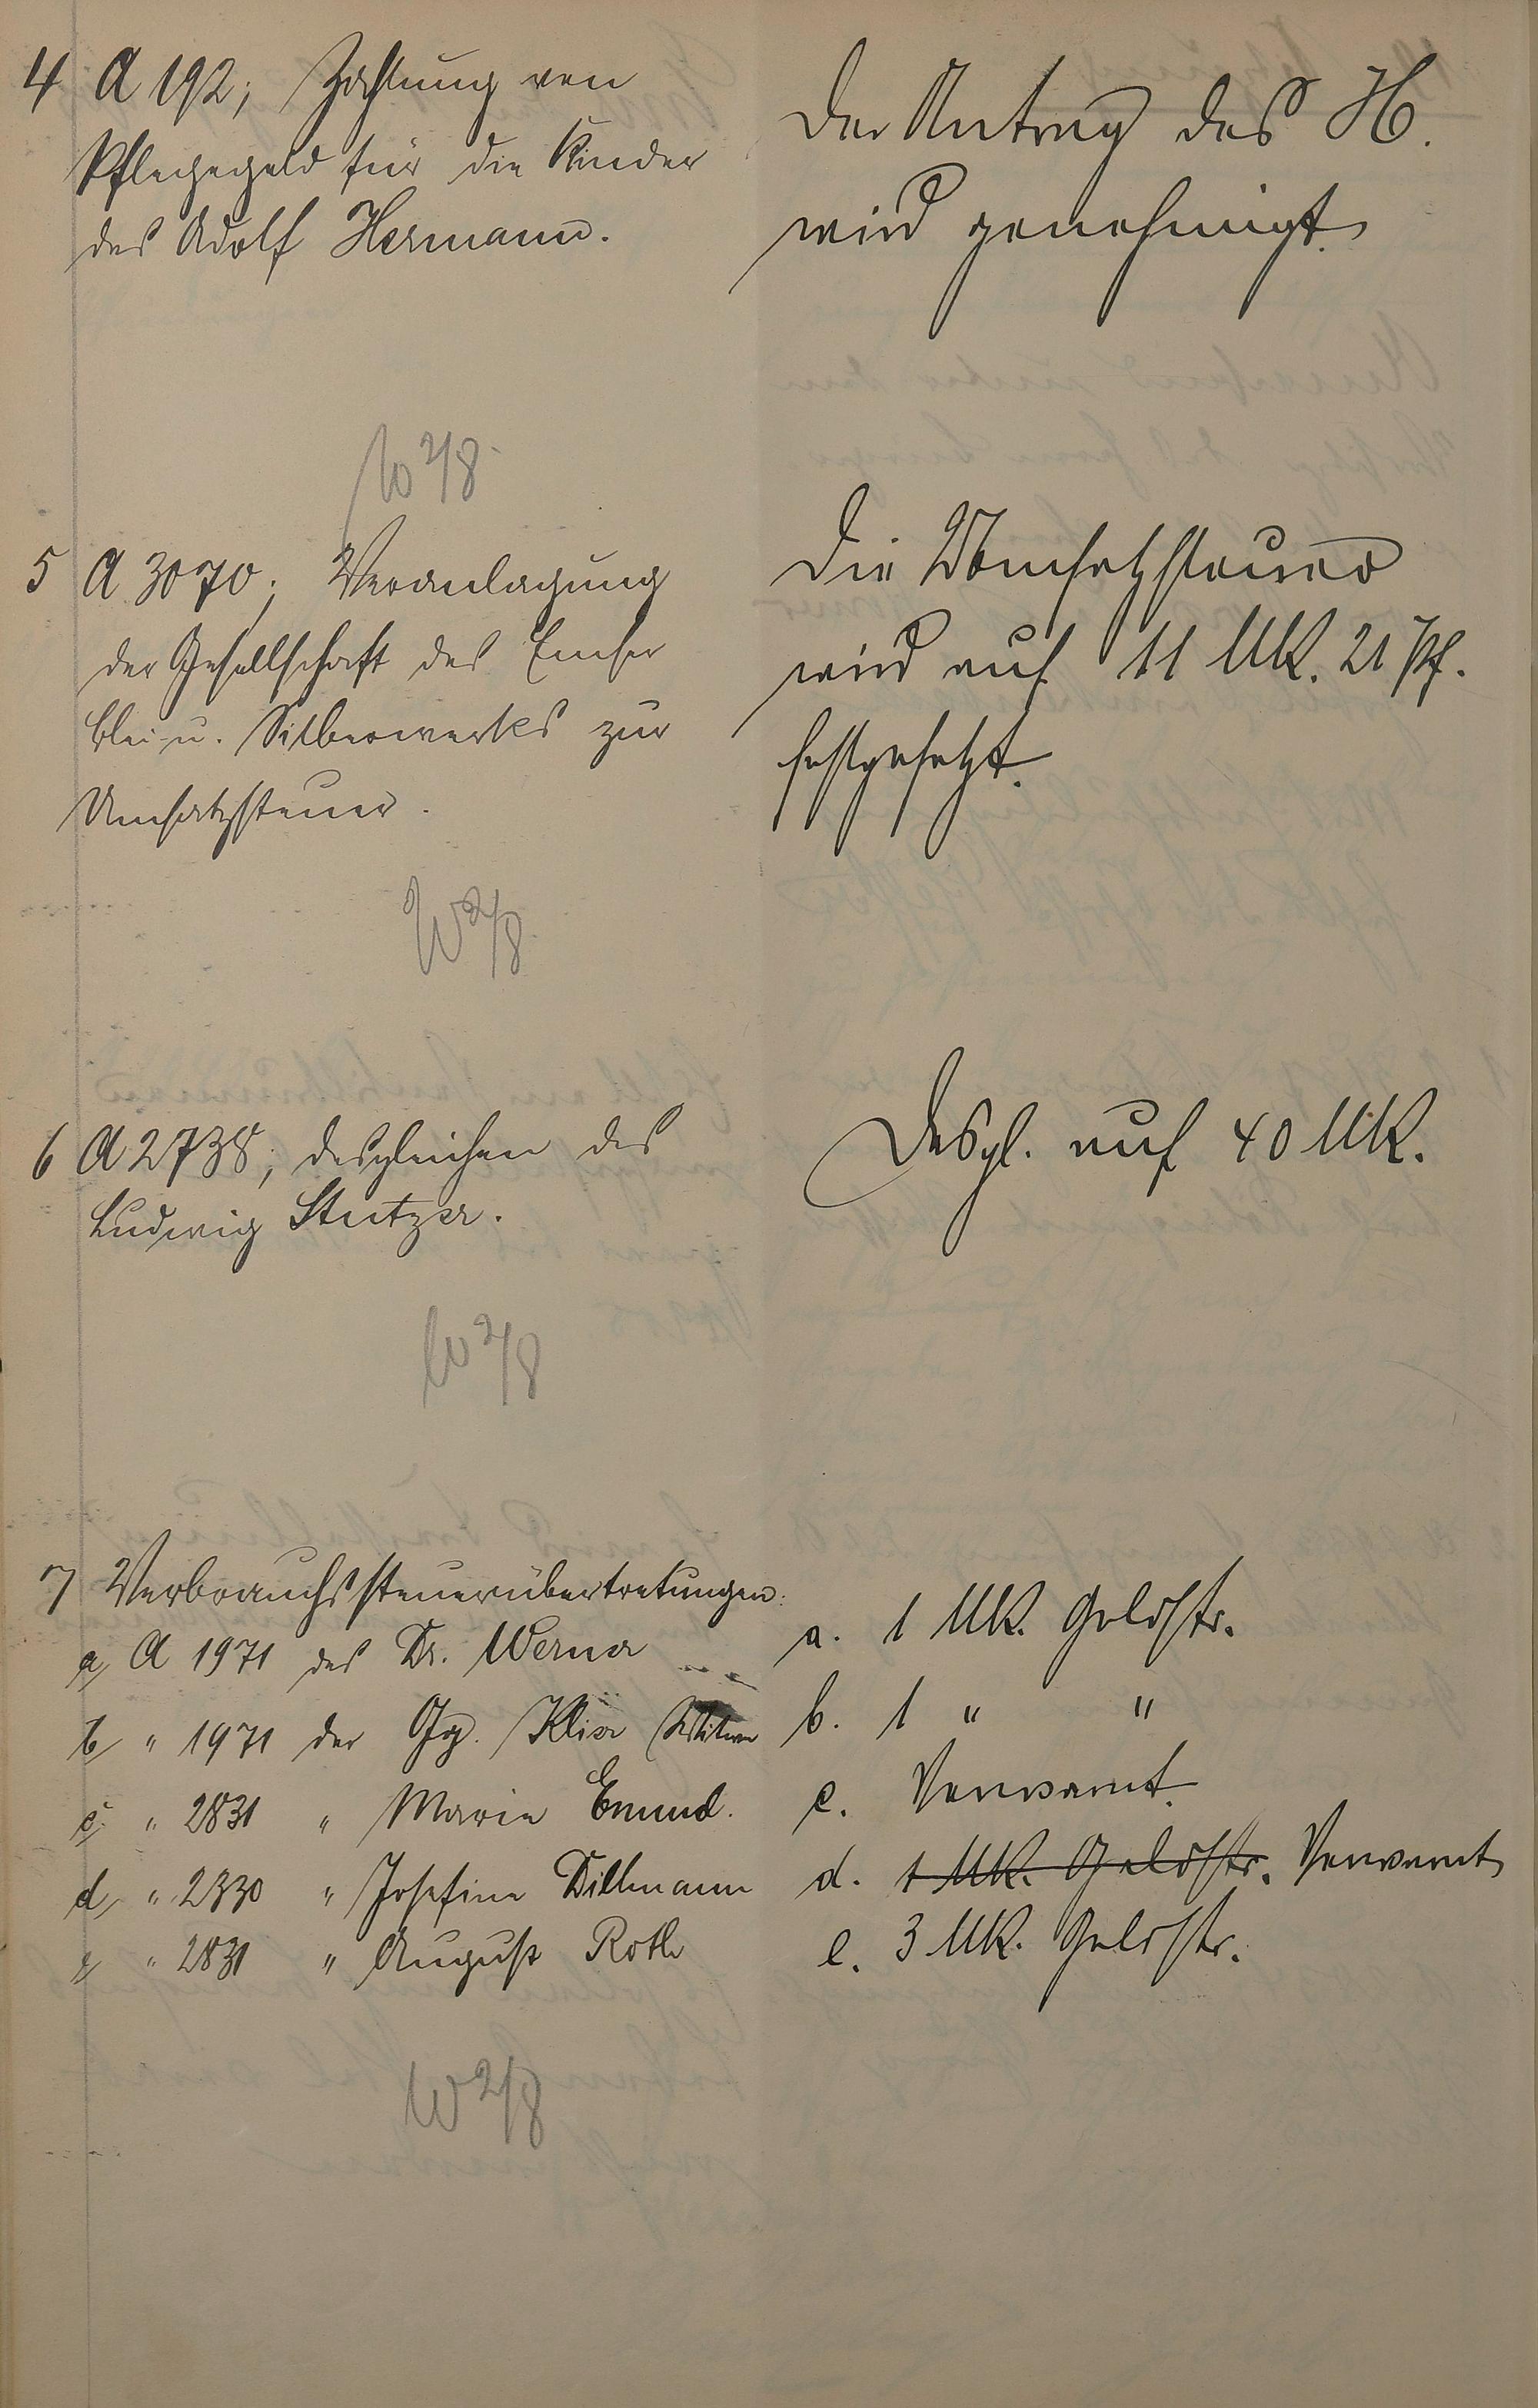 4 A 192; Zahlung von
Pflegegeld für die Kinder
des Adolf Hermann.
Der Antrag des H.
wird genehmigt.
W 2/8
5 A 3070; Veranlagung
der Gesellschaft des Emser
Blei- u. Silberwerks zur
Umsatzsteuer.
Die Umsatzsteuer
wird auf 11 Mk. 21 Pf.
festgesetzt.
W 2/8
6 A 2738; desgleichen des
Ludwig Stutzer.
Desgl. auf 40 Mk.
W 2/8
7 Verbrauchssteuerübertretungen:
a, A 1971 des Dr. Werner
b, " 1971 der Gg. Witwe
c, " 2831 " Marie Emund.
d, " 2330 " Josefine Dillmann
e, " 2831 " August Roth
a. 1 Mk. Geldstr.
b. 1 " "
c. Verwarnt.
d. 1 Mk. Geldstr. Verwarnt
e. 3 Mk. Geldstr.
W 2/8